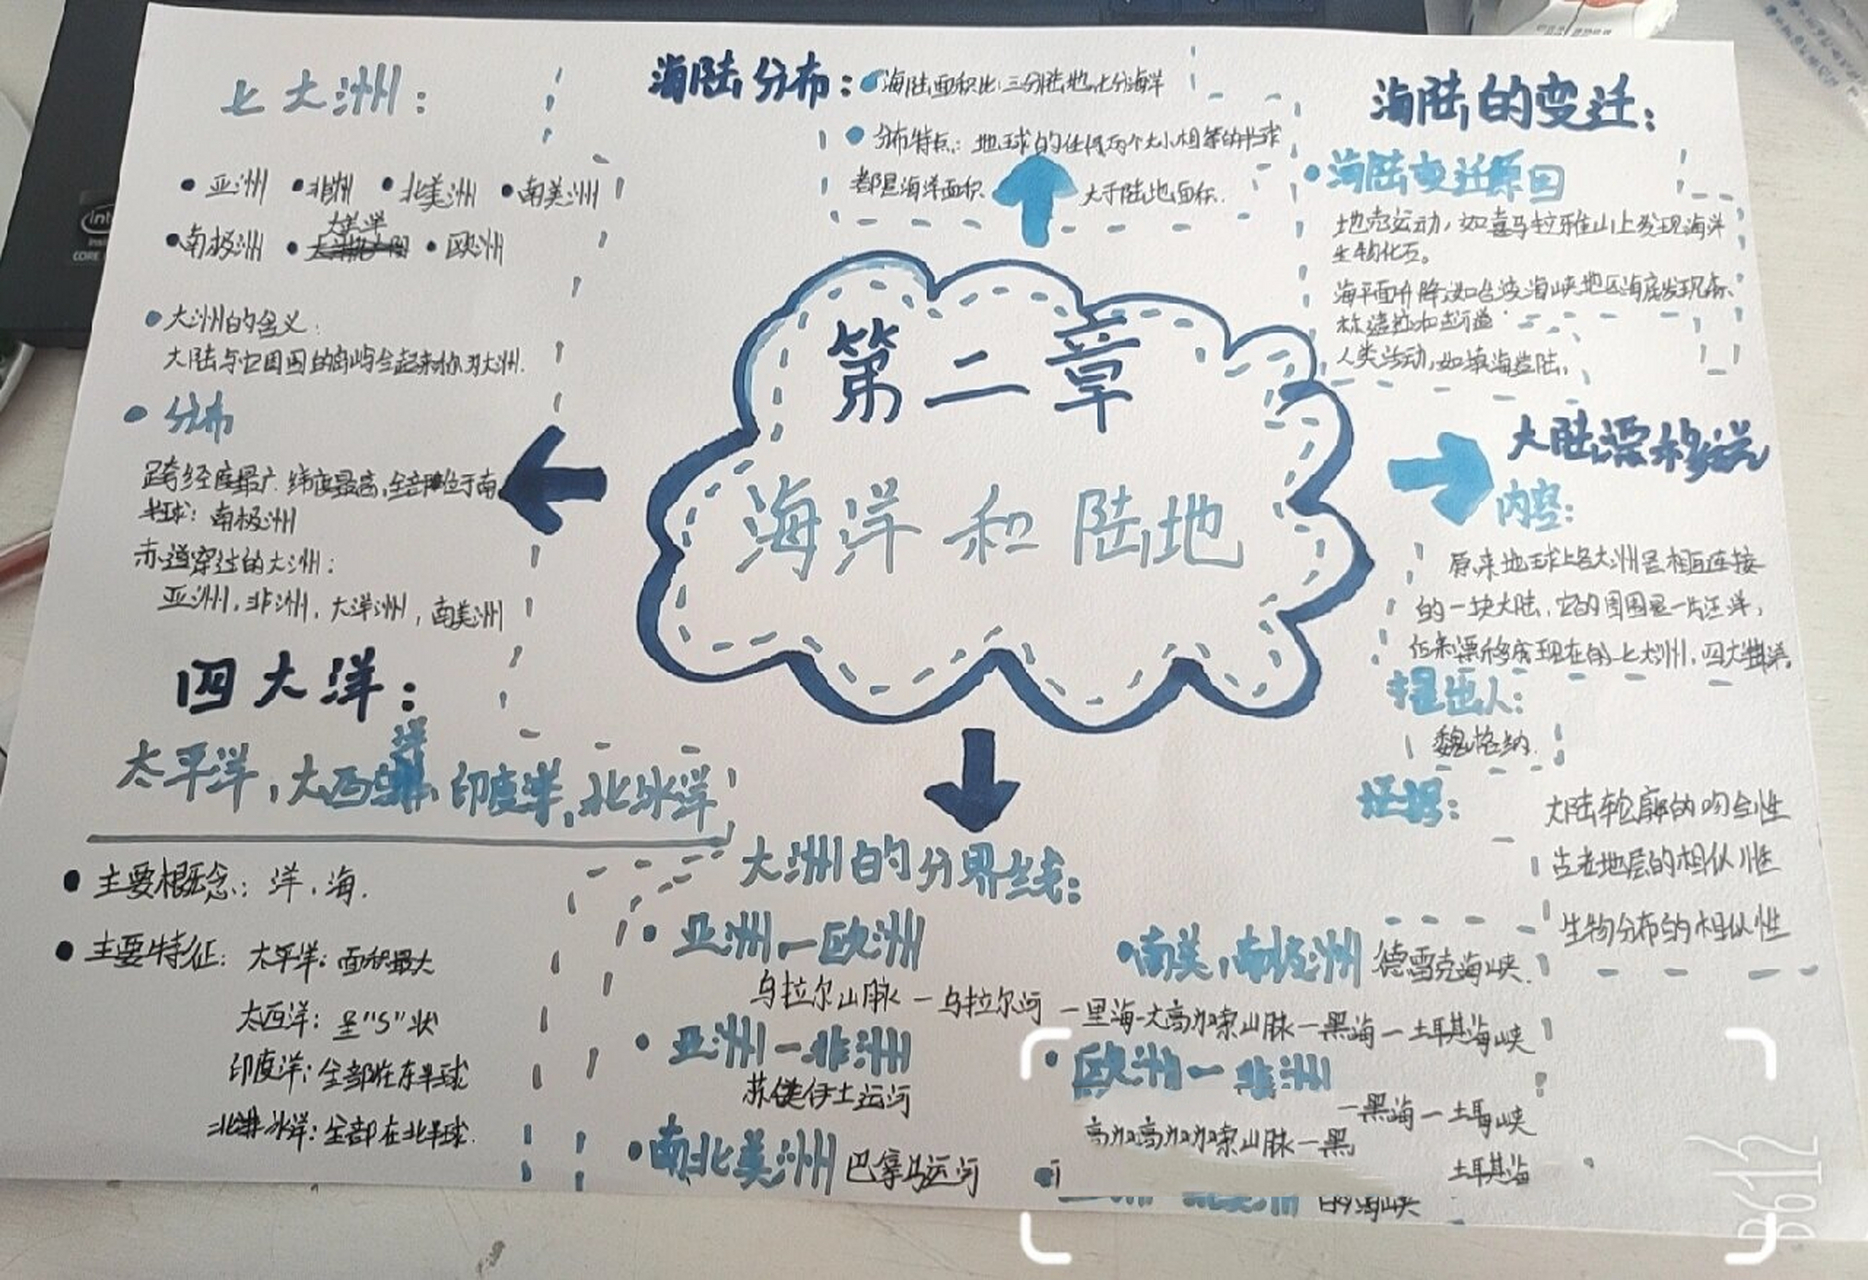 七大洲：
•亚洲 •非洲 •北美洲 •南美洲
大洋
•南极洲 • •欧洲
•大洲的含义：
大陆与它周围的岛屿合起来称为大洲.
•分布
跨经度最广.纬度最高,全部位于南
半球：南极洲
赤道穿过的大洲：
亚洲,非洲,大洋洲,南美洲
四大洋：
洋
太平洋,大西洋,印度洋,北冰洋
•主要概念：洋,海.
•主要特征：太平洋：面积最大
大西洋：呈"S"状
印度洋：全部在东半球
北冰洋：全部在北半球.
海陆分布：
•海陆面积比:三分陆地,七分海洋
•分布特点：地球的任何两个大小相等的半球
都是海洋面积 大于陆地面积.
第二章
海洋和陆地
大洲的分界线：
•亚洲—欧洲
乌拉尔山脉—乌拉尔河—里海-大高加索山脉—黑海—土耳其海峡
•亚洲—非洲
苏伊士运河
•南北美洲 巴拿马运河
•南美,南极洲 德雷克海峡.
•欧洲—非洲
—黑海—土耳峡
高加高加加索山脉—黑
土耳其海
的海峡
海陆的变迁：
•海陆变迁原因
地壳运动,如喜马拉雅山上发现海洋
生物化石。
海平面升降,如台湾海峡地区海底发现森
林遗迹和古河道
人类活动,如填海造陆.
大陆漂移说
内容：
原来地球上各大洲是相互连接
的一块大陆,它的周围是一片汪洋,
后来漂移成现在的七大洲,四大洋.
提出人：
魏格纳.
证据：
大陆轮廓的吻合性
古老地层的相似性
生物分布的相似性
intel
CORE